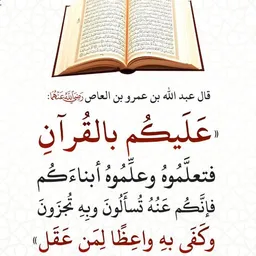 قال عبد الله بن عمرو بن العاص رَضِيَ اللهُ عَنْهُمَا:
«عَلَيكُم بالقُرآنِ
فتعلَّمُوهُ وعلِّمُوهُ أبناءَكُم
فإنَّكُم عَنْهُ تُسألُونَ وبِهِ تُجزَونَ
وكَفَى بهِ واعِظًا لِمَن عَقَل»